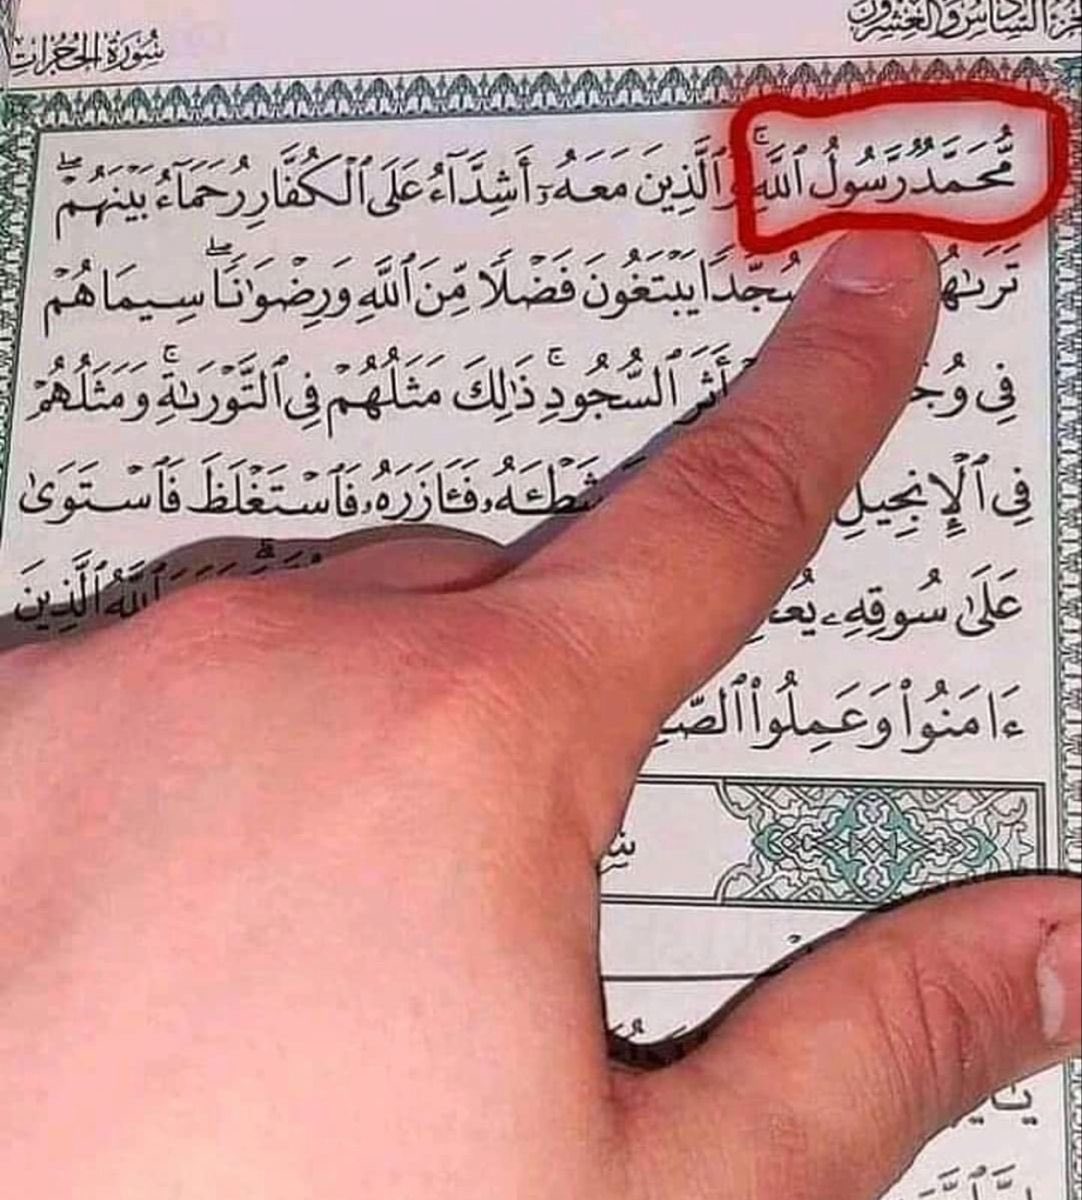 سُورَةُ الحُجُرَاتِ
الجُزْءُ السَّادِسُ وَالعِشْرُونَ
مُّحَمَّدٌ رَّسُولُ ٱللَّهِۚ وَٱلَّذِينَ مَعَهُۥٓ أَشِدَّآءُ عَلَى ٱلْكُفَّارِ رُحَمَآءُ بَيْنَهُمْۖ
تَرَىٰهُ سُجَّدًا يَبْتَغُونَ فَضْلًا مِّنَ ٱللَّهِ وَرِضْوَٰنًاۖ سِيمَاهُمْ
فِى أَثَرِ ٱلسُّجُودِۚ ذَٰلِكَ مَثَلُهُمْ فِى ٱلتَّوْرَىٰةِۚ وَمَثَلُهُمْ
فِى ٱلْإِنجِيلِ شَطْـَٔهُۥ فَـَٔازَرَهُۥ فَٱسْتَغْلَظَ فَٱسْتَوَىٰ
عَلَىٰ سُوقِهِۦ ٱللَّهُ ٱلَّذِينَ
ءَامَنُوا۟ وَعَمِلُوا۟